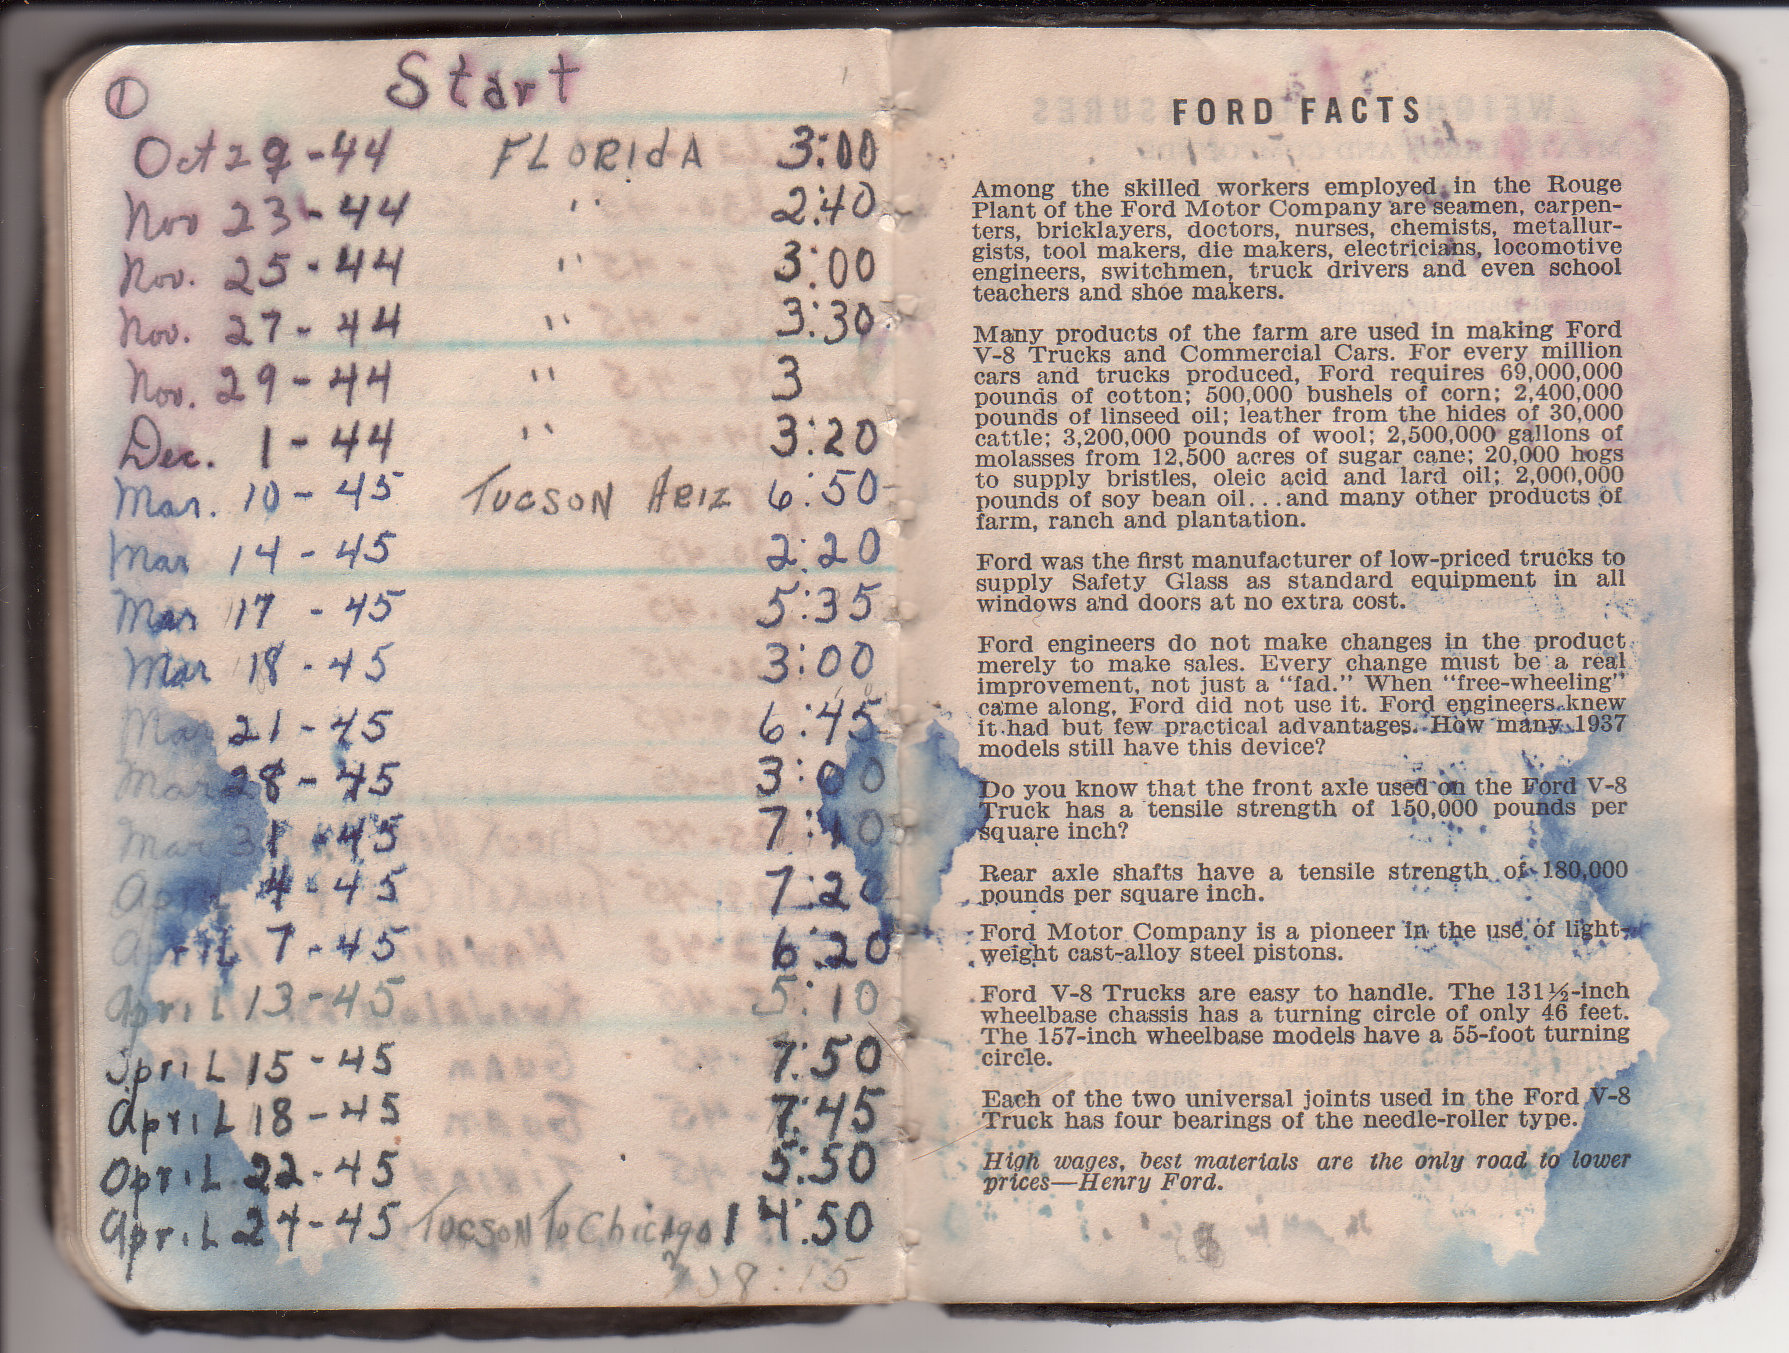 ① Start
Oct 29 - 44 FLORIdA 3:00
Nov 23 - 44 " 2:40
Nov. 25 - 44 " 3:00
Nov. 27 - 44 " 3:30
Nov. 29 - 44 " 3
Dec. 1 - 44 " 3:20
Mar. 10 - 45 TUCSON ARIZ 6:50
Mar 14 - 45 2:20
Mar 17 - 45 5:35
Mar 18 - 45 3:00
Mar 21 - 45 6:45
Mar 28 - 45 3:00
Mar 31 - 45 7:10
April 4 - 45 7:20
April 7 - 45 6:20
April 13 - 45 5:10
April 15 - 45 7:50
April 18 - 45 7:45
April 22 - 45 5:50
April 24 - 45 Tucson To Chicago 14:50
FORD FACTS
Among the skilled workers employed in the Rouge
Plant of the Ford Motor Company are seamen, carpen-
ters, bricklayers, doctors, nurses, chemists, metallur-
gists, tool makers, die makers, electricians, locomotive
engineers, switchmen, truck drivers and even school
teachers and shoe makers.
Many products of the farm are used in making Ford
V-8 Trucks and Commercial Cars. For every million
cars and trucks produced, Ford requires 69,000,000
pounds of cotton; 500,000 bushels of corn; 2,400,000
pounds of linseed oil; leather from the hides of 30,000
cattle; 3,200,000 pounds of wool; 2,500,000 gallons of
molasses from 12,500 acres of sugar cane; 20,000 hogs
to supply bristles, oleic acid and lard oil; 2,000,000
pounds of soy bean oil...and many other products of
farm, ranch and plantation.
Ford was the first manufacturer of low-priced trucks to
supply Safety Glass as standard equipment in all
windows and doors at no extra cost.
Ford engineers do not make changes in the product
merely to make sales. Every change must be a real
improvement, not just a “fad.” When “free-wheeling”
came along, Ford did not use it. Ford engineers knew
it had but few practical advantages. How many 1937
models still have this device?
Do you know that the front axle used on the Ford V-8
Truck has a tensile strength of 150,000 pounds per
square inch?
Rear axle shafts have a tensile strength of 180,000
pounds per square inch.
Ford Motor Company is a pioneer in the use of light-
weight cast-alloy steel pistons.
Ford V-8 Trucks are easy to handle. The 131½-inch
wheelbase chassis has a turning circle of only 46 feet.
The 157-inch wheelbase models have a 55-foot turning
circle.
Each of the two universal joints used in the Ford V-8
Truck has four bearings of the needle-roller type.
High wages, best materials are the only road to lower
prices—Henry Ford.